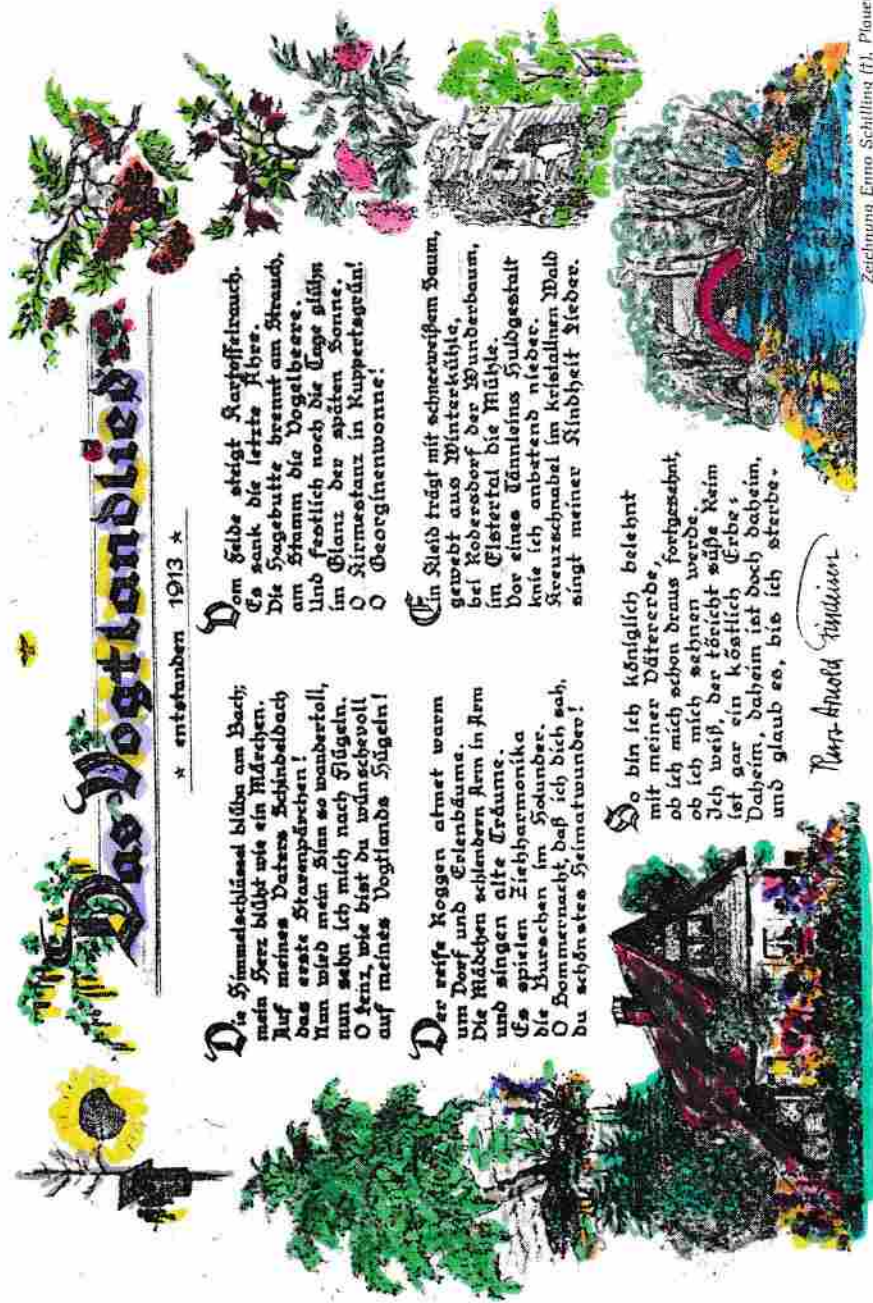 Das Vogtlandlied
* entstanden 1913 *
Die Himmelschlüssel blühn am Bach;
mein Herz blüht wie ein Märchen.
Auf meines Vaters Schindeldach
das erste Starenpärchen!
Nun wird mein Sinn so wandertoll,
nun sehn ich mich nach Flügeln.
O Lenz, wie bist du wünschevoll
auf meines Vogtlands Hügeln!
Der reife Roggen atmet warm
um Dorf und Erlenbäume.
Die Mädchen schlendern Arm in Arm
und singen alte Träume.
Es spielen Ziehharmonika
die Burschen im Holunder.
O Sommernacht, daß ich dich sah,
du schönstes Heimatwunder!
Vom Felde steigt Kartoffelrauch.
Es sank die letzte Ähre.
Die Hagebutte brennt am Strauch,
am Stamm die Vogelbeere.
Und festlich noch die Tage glühn
im Glanz der späten Sonne.
O Kirmestanz in Ruppertsgrün!
O Georginenwonne!
Ein Kleid trägt mit schneeweißem Saum,
gewebt aus Winterkühle,
bei Kodersdorf der Wunderbaum,
im Elstertal die Mühle.
Vor eines Tännleins Huldgestalt
knie ich anbetend nieder.
Kreuzschnabel im kristallnen Wald
singt meiner Kindheit Lieder.
So bin ich königlich belehnt
mit meiner Vätererde,
ob ich mich schon draus fortgesehnt,
ob ich mich sehnen werde.
Ich weiß, der töricht süße Reim
ist gar ein köstlich Erbe:
Daheim, daheim ist doch daheim,
und glaub es, bis ich sterbe.
Kurt Arnold Findeisen
Zeichnung Enno Schilling (†), Plauen